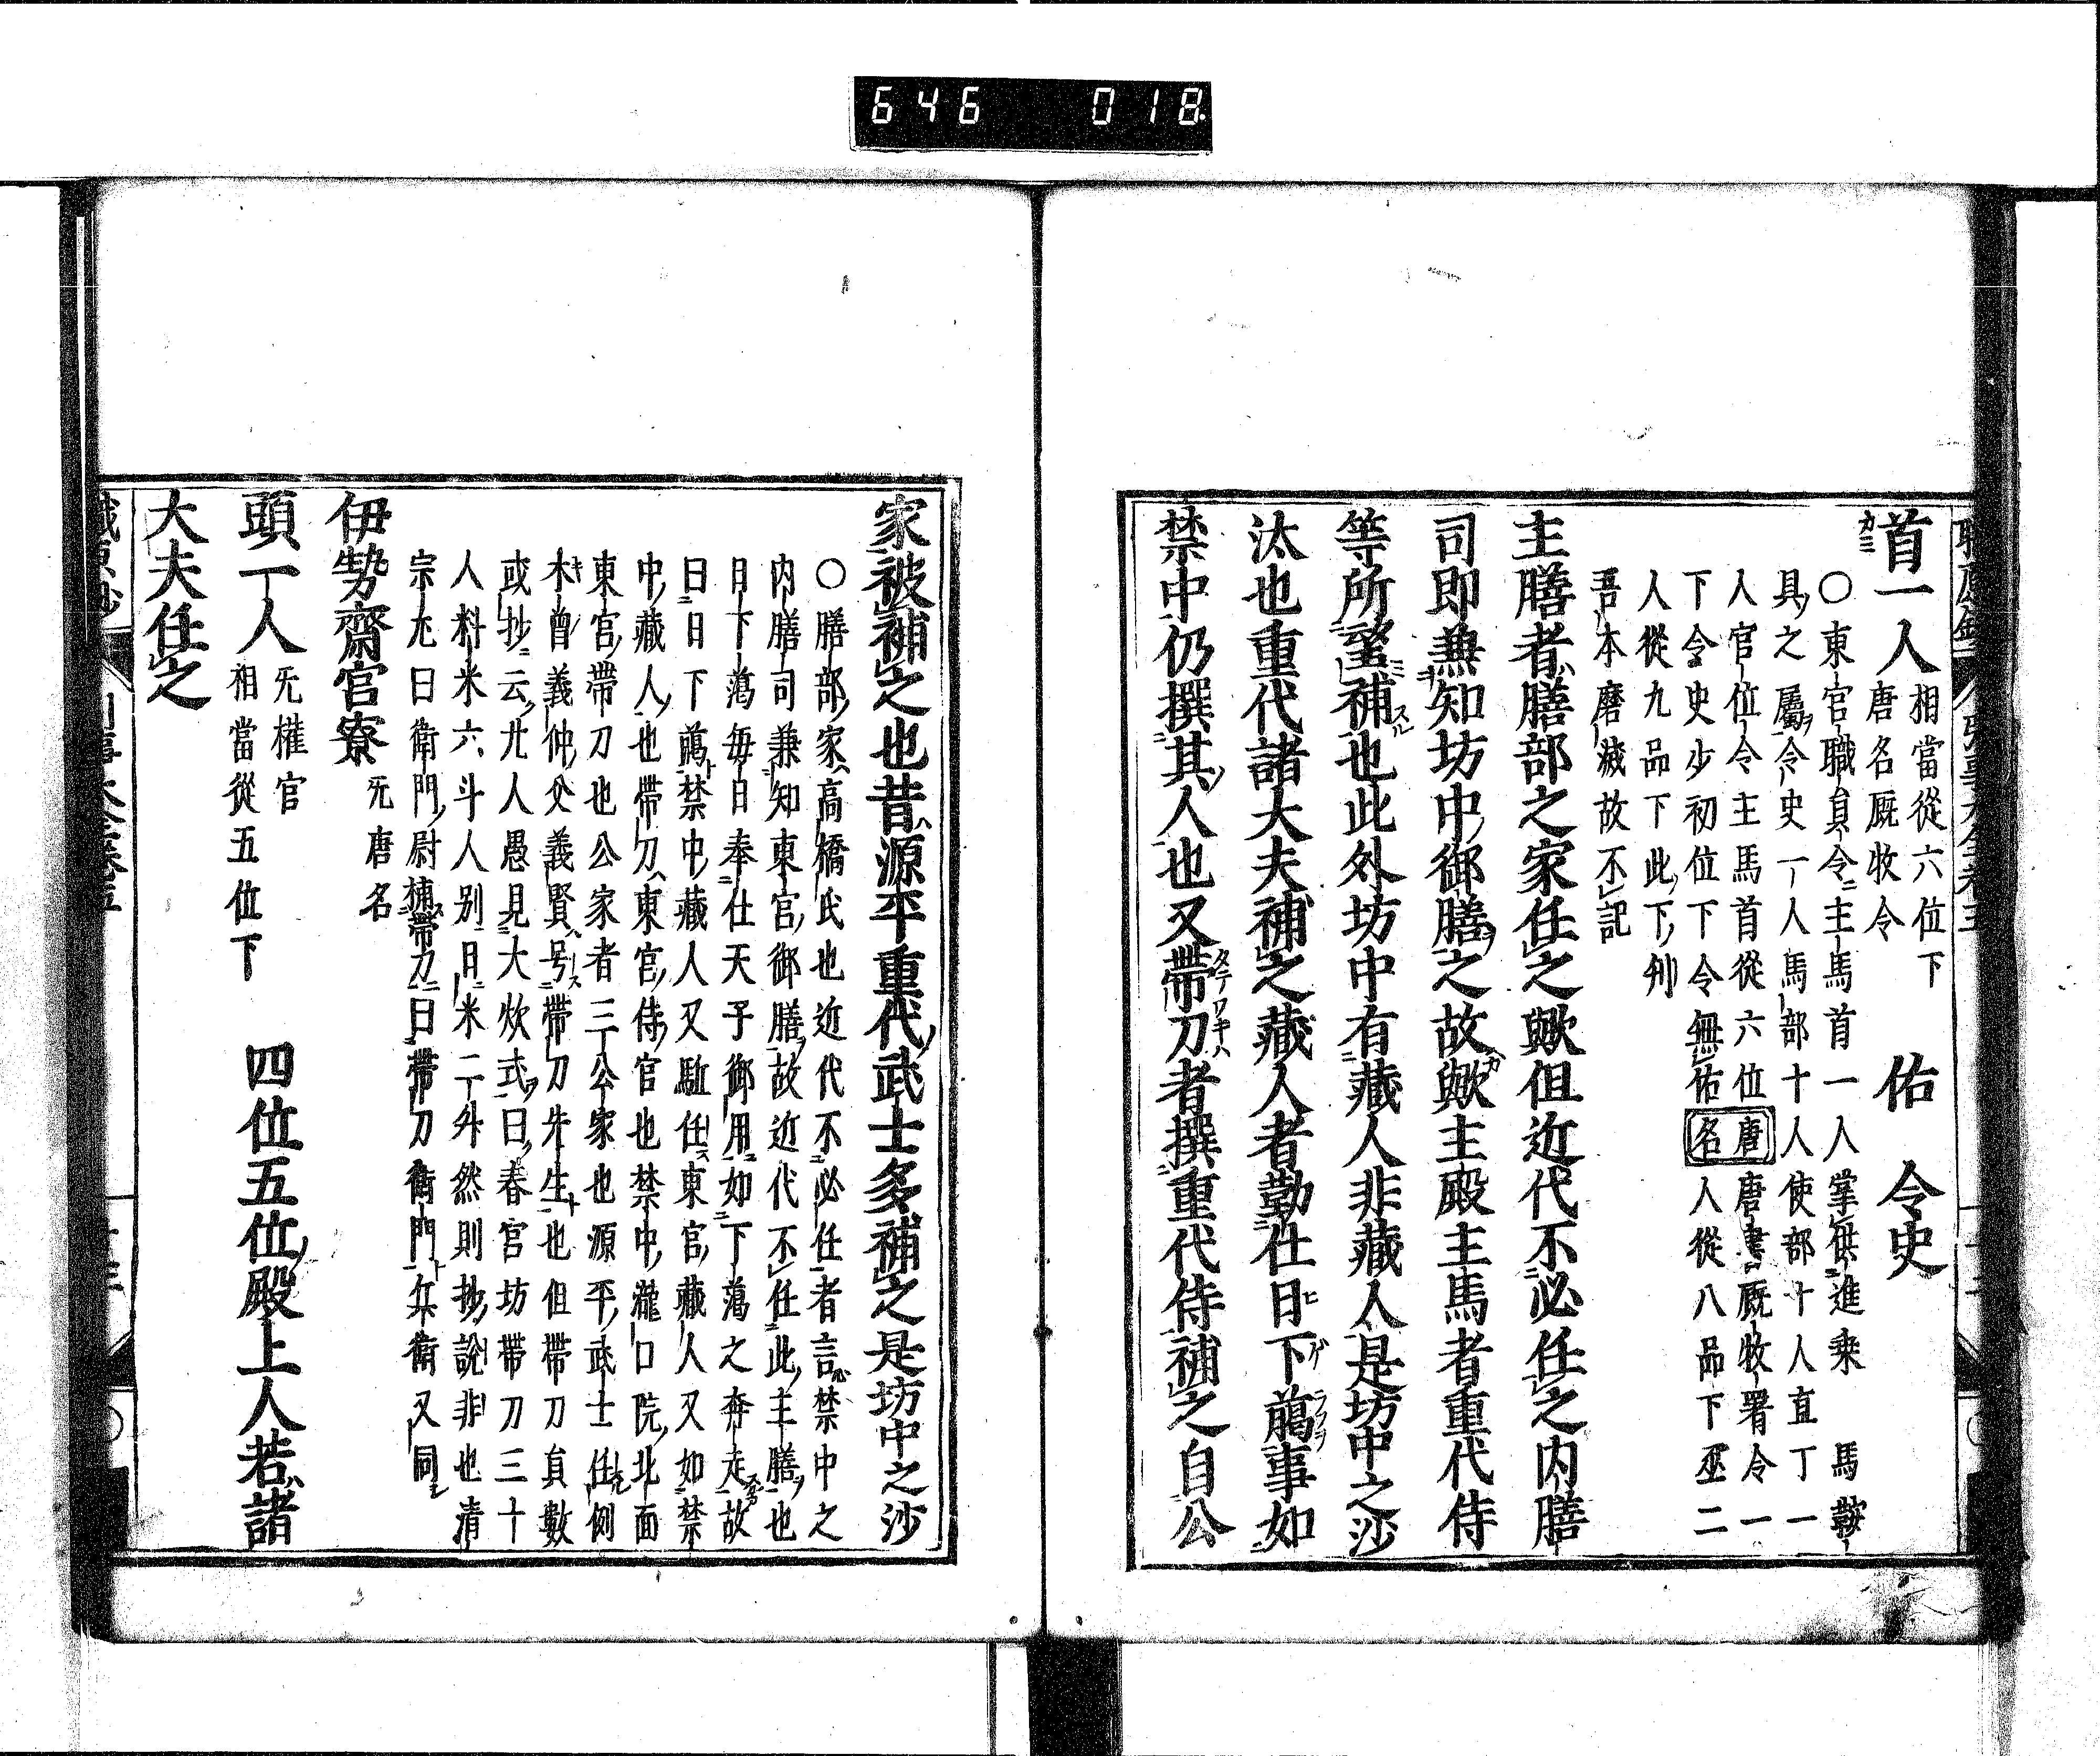 646 018
首一人 相當從六位下 佑 令史
唐名厩牧令
〇東宮職員令主馬首一人掌供進乘馬鞍
具之屬令史一人馬部十人使部十人直丁一
人官位令主馬首從六位唐名唐書厩牧署令一
下令史少初位下令無佑 人從八品下丞二
人從九品下此下列
吾本磨滅故不記
主膳者膳部之家任之歟但近代不必任之内膳
司即兼知坊中御膳之故歟主殿主馬者重代侍
等所望補也此外坊中有藏人非藏人是坊中之沙
汰也重代諸大夫補之藏人者勤仕日下﨟事如
禁中仍撰其人也又帶刀者撰重代侍補之自公
家被補之也昔源平重代武士多補之是坊中之沙
〇膳部家高橋氏也近代不必任者言禁中之
内膳司兼知東宮御膳故近代不任此主膳也
日下﨟每日奉仕天子御用如下﨟之奔走故
曰日下﨟禁中藏人又駈任東官藏人又如禁
中藏人也帶刀東宮侍官也禁中瀧口院北面
東宮帶刀也公家者三公家也源平武士任例
木曾義仲父義賢号帶刀先生也但帶刀員數
或抄云九人愚見大炊式曰春宮坊帶刀三十
人料米六斗人別日米二升然則抄說非也清
宗尤曰衛門尉補帶刀曰帶刀衛門兵衛又同
伊勢齋宮寮 旡唐名
頭一人 旡權官 四位五位殿上人若諸
相當從五位下
大夫任之